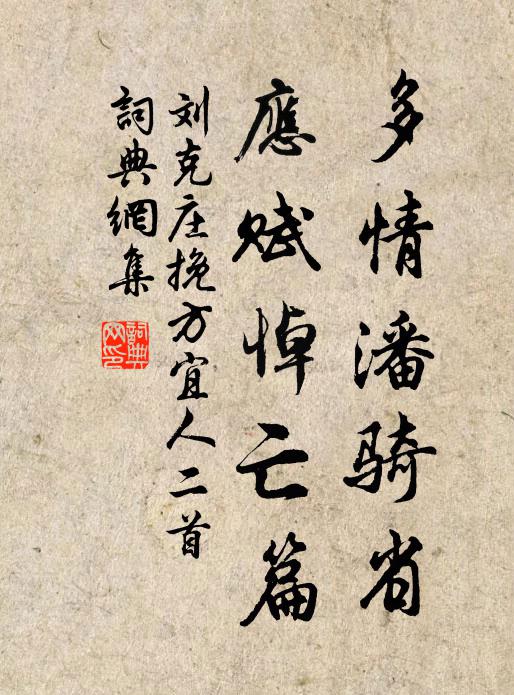 多情潘骑省
應赋悼亡篇
刘克庄挽方宜人二首
詞典網集
詞典网印